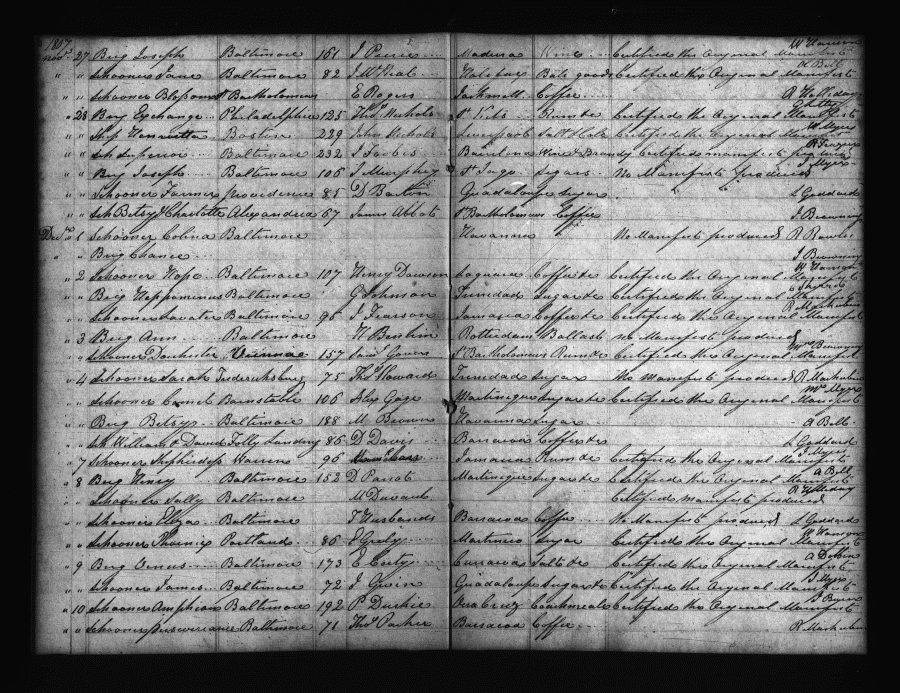 1807
Nov 27 Brig Joseph Baltimore 161 J Peirce Madeira Wine Certified the Original Manifest W Hanson
" " Schooner Jane Baltimore 82 Halifax Bale goods Certified the Original Manifest A Bell
" " Schooner Blossom St Bartholomews E Rogers Jackmell Coffee R Holliday
" 28 Brig Exchange Philadelphia 125 Thos Nichols St Kitts Rum &c Certified the Original Manifest
" " Ship Henrietta Boston 229 John Nichols Liverpool Salt Certified the Original Manifest W Myers
" " Sch Superior Baltimore 232 J Forbes Barcelona Wine & Brandy Certified manifest
" " Brig Joseph Baltimore 106 J Murphy St Jago Segars No Manifest produced J Myers
" " Schooner Farmer Providence 85 D Barton Guadaloupe Sugar L Goddard
" " Sch Betsy & Charlotte Alexandria 67 James Abbot St Bartholomews Coffee J Browning
Dec " 1 Schooner Colina Baltimore Havanna No Manifest produced R Rowles
" " Brig Chance J Browning
" 2 Schooner Hope Baltimore 107 Henry Dawson Laguaira Coffee &c Certified the Original Manifest W Hanson
" " Brig Baltimore G Johnson Trinidad Sugar &c Certified the Original Manifest
" " Schooner Lavater Baltimore 95 J Pearson Jamaica Coffee &c Certified the Original Manifest
" 3 Brig Ann Baltimore Rotterdam Ballast no Manifest produced
" " Schooner Dorchester Vienna 157 St Bartholomews Rum &c Certified the Original Manifest Browning
" 4 Schooner Sarah Fredericksburg 75 Thos Howard Trinidad Sugar No Manifest produced
" " Schooner Comet Barnstable 106 Alex Gage Martinique Sugar &c Certified the Original Manifest Myers
" " Brig Betsy Baltimore 188 M Brown Havanna Sugar A Bell
" " Sch William & David Folly Landing 86 D Davis Barracoa Coffee &c L Goddard
" 7 Schooner Shepherdess Warren 96 Jamaica Rum &c Certified the Original Manifest J Myers
" 8 Brig Henry Baltimore 152 D Parrot Martinique Sugar &c Certified the Original Manifest A Bell
" " Schooner Sally Baltimore Certified Manifest produced R Holliday
" " Schooner Eliza Baltimore T Husbands Barracoa Coffee No Manifest produced L Goddard
" " Schooner Phoenix Portland 86 Martinico Sugar Certified the Original Manifest W Hanson
" 9 Brig Venus Baltimore 173 Curracoa Salt &c Certified the Original Manifest
" " Schooner James Baltimore 72 J Gwin Guadaloupe Sugar &c Certified the Original Manifest
" 10 Schooner Amphion Baltimore 192 P Duchie Vera Cruz Cochineal &c Certified the Original Manifest
" " Schooner Perseverance Baltimore 71 Thos Parker Barracoa Coffee